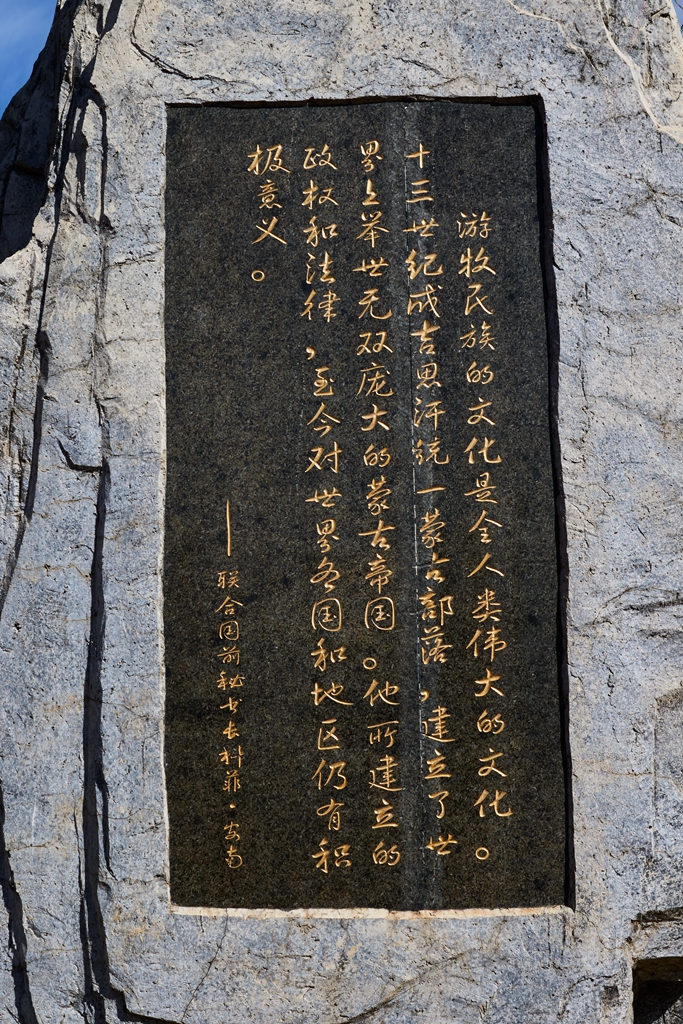 游牧民族的文化是全人类伟大的文化。
十三世纪成吉思汗统一蒙古部落,建立了世
界上举世无双庞大的蒙古帝国。他所建立的
政权和法律,至今对世界各国和地区仍有积
极意义。
——联合国前秘书长科菲·安南